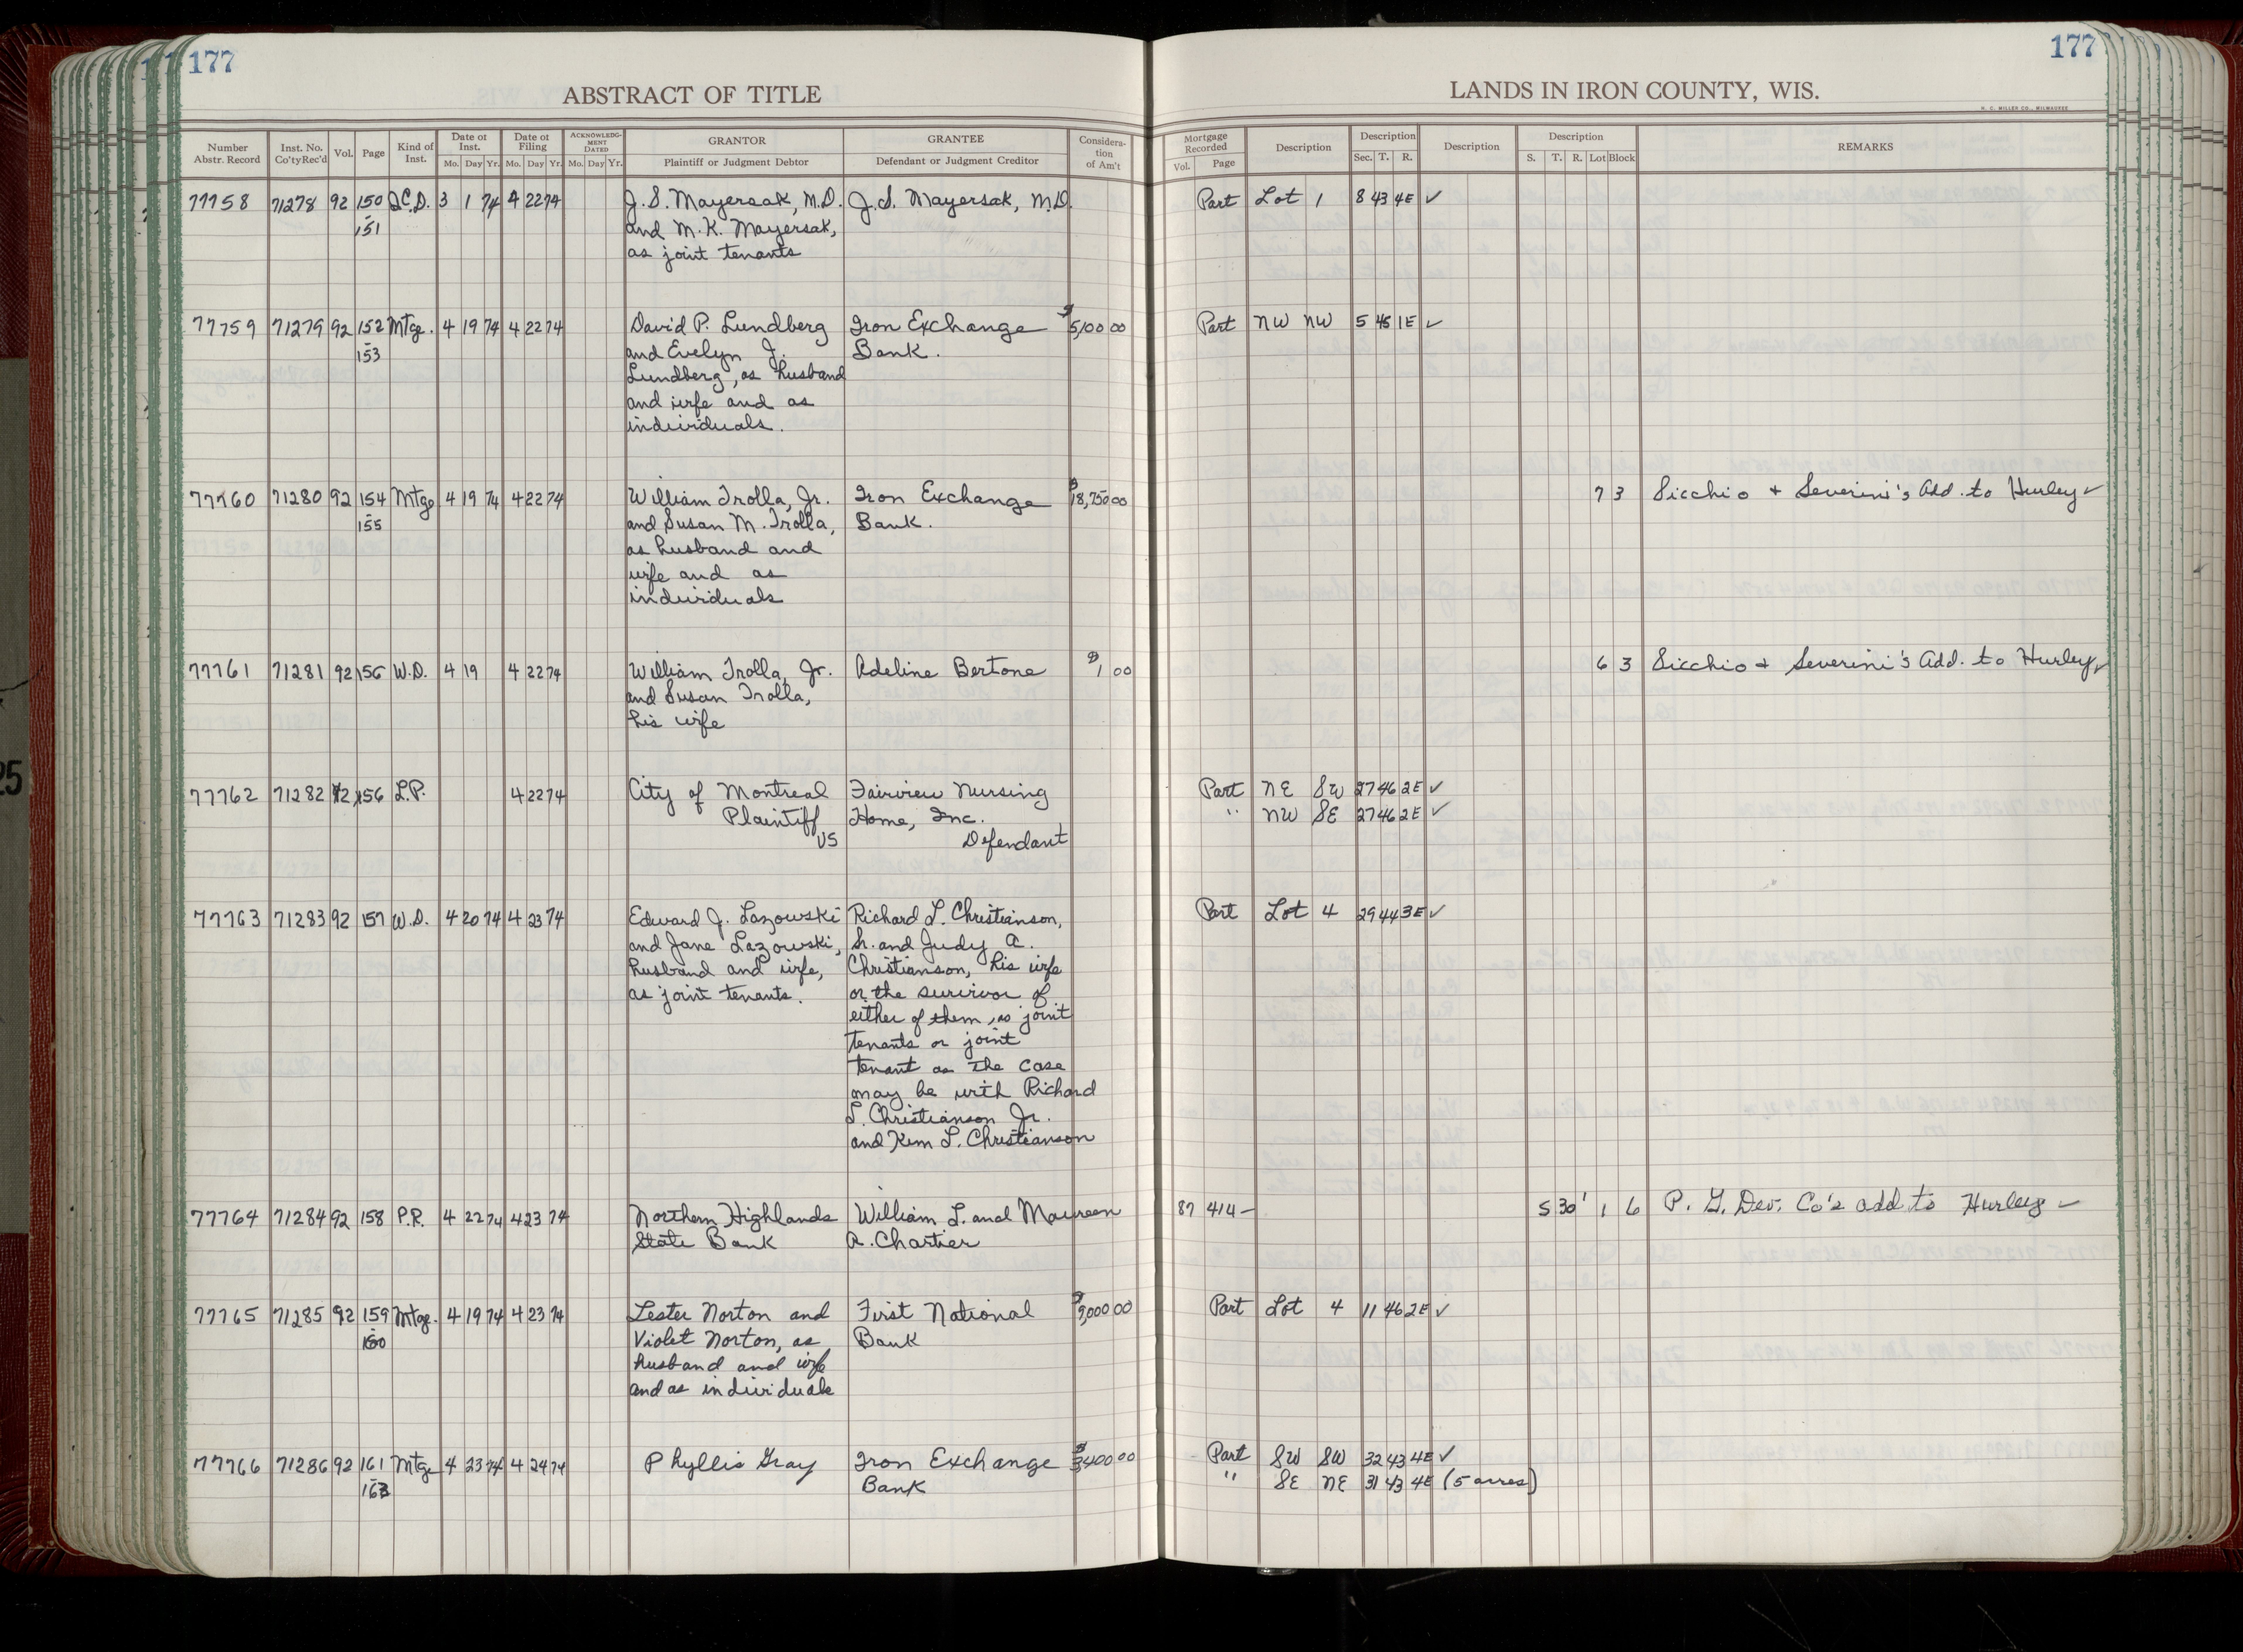 177
177
ABSTRACT OF TITLE
LANDS IN IRON COUNTY, WIS.
H. C. MILLER CO., MILWAUKEE
Number Abstr. Record | Inst. No. Co'ty Rec'd | Vol. | Page | Kind of Inst. | Date of Inst. Mo. Day Yr. | Date of Filing Mo. Day Yr. | ACKNOWLEDGMENT DATED Mo. Day Yr. | GRANTOR Plaintiff or Judgment Debtor | GRANTEE Defendant or Judgment Creditor | Consideration of Am't | Mortgage Recorded Vol. Page | Description | Description Sec. T. R. | Description | Description S. T. R. Lot Block | REMARKS
77758 71278 92 150 Q.C.D. 3 1 74 4 22 74 J. S. Mayersak, M.D. J. S. Mayersak, M.D. Part Lot 1 8 43 4E ✓
- 151 and M. K. Mayersak,
as joint tenants
77759 71279 92 152 Mtge. 4 19 74 4 22 74 David P. Lundberg Iron Exchange $5,100 00 Part NW NW 5 45 1E ✓
- 153 and Evelyn J. Bank.
Lundberg, as husband
and wife and as
individuals.
77760 71280 92 154 Mtge 4 19 74 4 22 74 William Trolla, Jr. Iron Exchange $18,750 00 7 3 Sicchio + Severini's Add. to Hurley ✓
- 155 and Susan M. Trolla, Bank.
as husband and
wife and as
individuals
77761 71281 92 156 W.D. 4 19 4 22 74 William Trolla, Jr. Adeline Bertone $1 00 6 3 Sicchio + Severini's Add. to Hurley ✓
and Susan Trolla,
his wife
77762 71282 92 156 L.P. 4 22 74 City of Montreal Fairview Nursing Part NE SW 27 46 2E ✓
Plaintiff Home, Inc. " NW SE 27 46 2E ✓
VS Defendant
77763 71283 92 157 W.D. 4 20 74 4 23 74 Edward J. Lazowski Richard L. Christianson, Part Lot 4 29 44 3E ✓
and Jane Lazowski, Sr. and Judy A.
husband and wife, Christianson, his wife
as joint tenants. or the survivor of
either of them, as joint
tenants or joint
tenant as the case
may be with Richard
L. Christianson Jr.
and Kim L. Christianson
77764 71284 92 158 P.R. 4 22 74 4 23 74 Northern Highlands William L. and Maureen 87 414 - S 30' 1 6 P. G. Dev. Co's add. to Hurley ✓
State Bank A. Chartier
77765 71285 92 159 Mtge. 4 19 74 4 23 74 Lester Norton and First National $9,000 00 Part Lot 4 11 46 2E ✓
- 160 Violet Norton, as Bank
husband and wife
and as individuals
77766 71286 92 161 Mtge 4 23 74 4 24 74 Phyllis Gray Iron Exchange $3400 00 Part SW SW 32 43 4E ✓
- 163 Bank " SE NE 31 43 4E (5 acres)